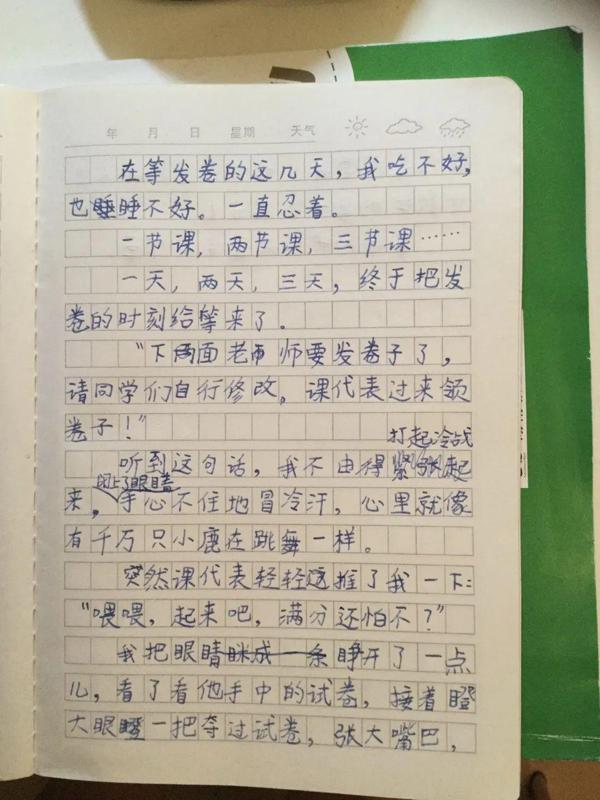 年 月 日 星期 天气
在等发卷的这几天，我吃不好，
也睡睡不好。一直忍着。
一节课，两节课，三节课……
一天，两天，三天，终于把发
卷的时刻给等来了。
“下面老师要发卷子了，
请同学们自行修改，课代表过来领
卷子！”
打起冷战
听到这句话，我不由得紧张起
闭上了眼睛
来，手心不住地冒冷汗，心里就像
有千万只小鹿在跳舞一样。
突然课代表轻轻推了我一下：
“喂喂，起来吧，满分还怕不？”
我把眼睛眯成一条睁开了一点
儿，看了看他手中的试卷，接着瞪
大眼瞪一把夺过试卷，张大嘴巴，